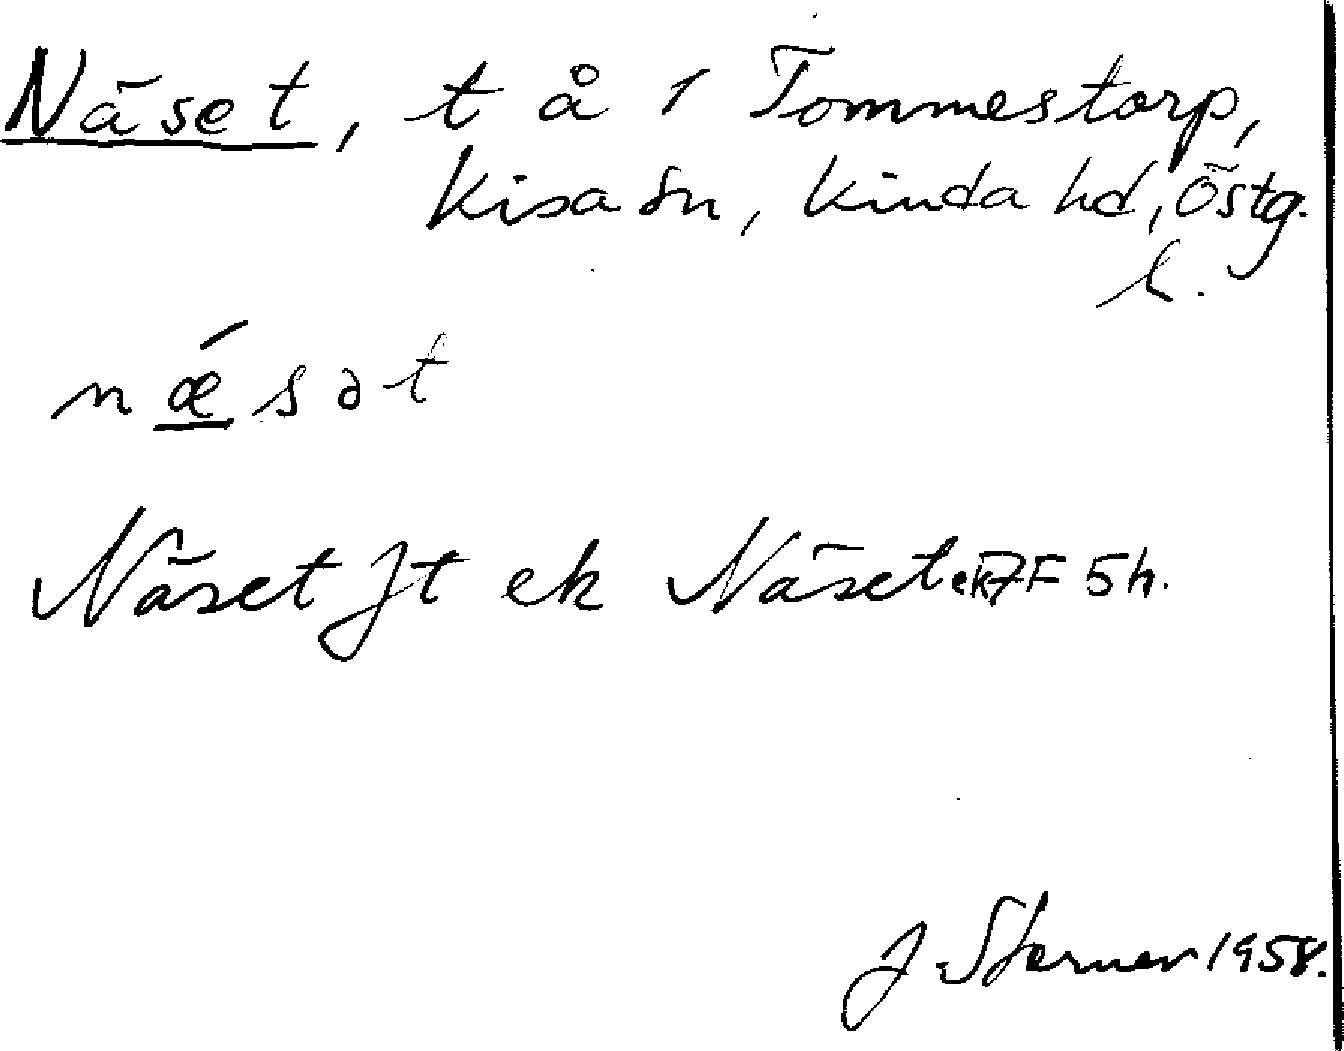 Näset, t å 1 Tommestorp,
Kisa sn, Kinda hd, Östg.
l.
nǽsət
Näset Jt ek Näset ek 7F 5h.
J. Sterner 1958.